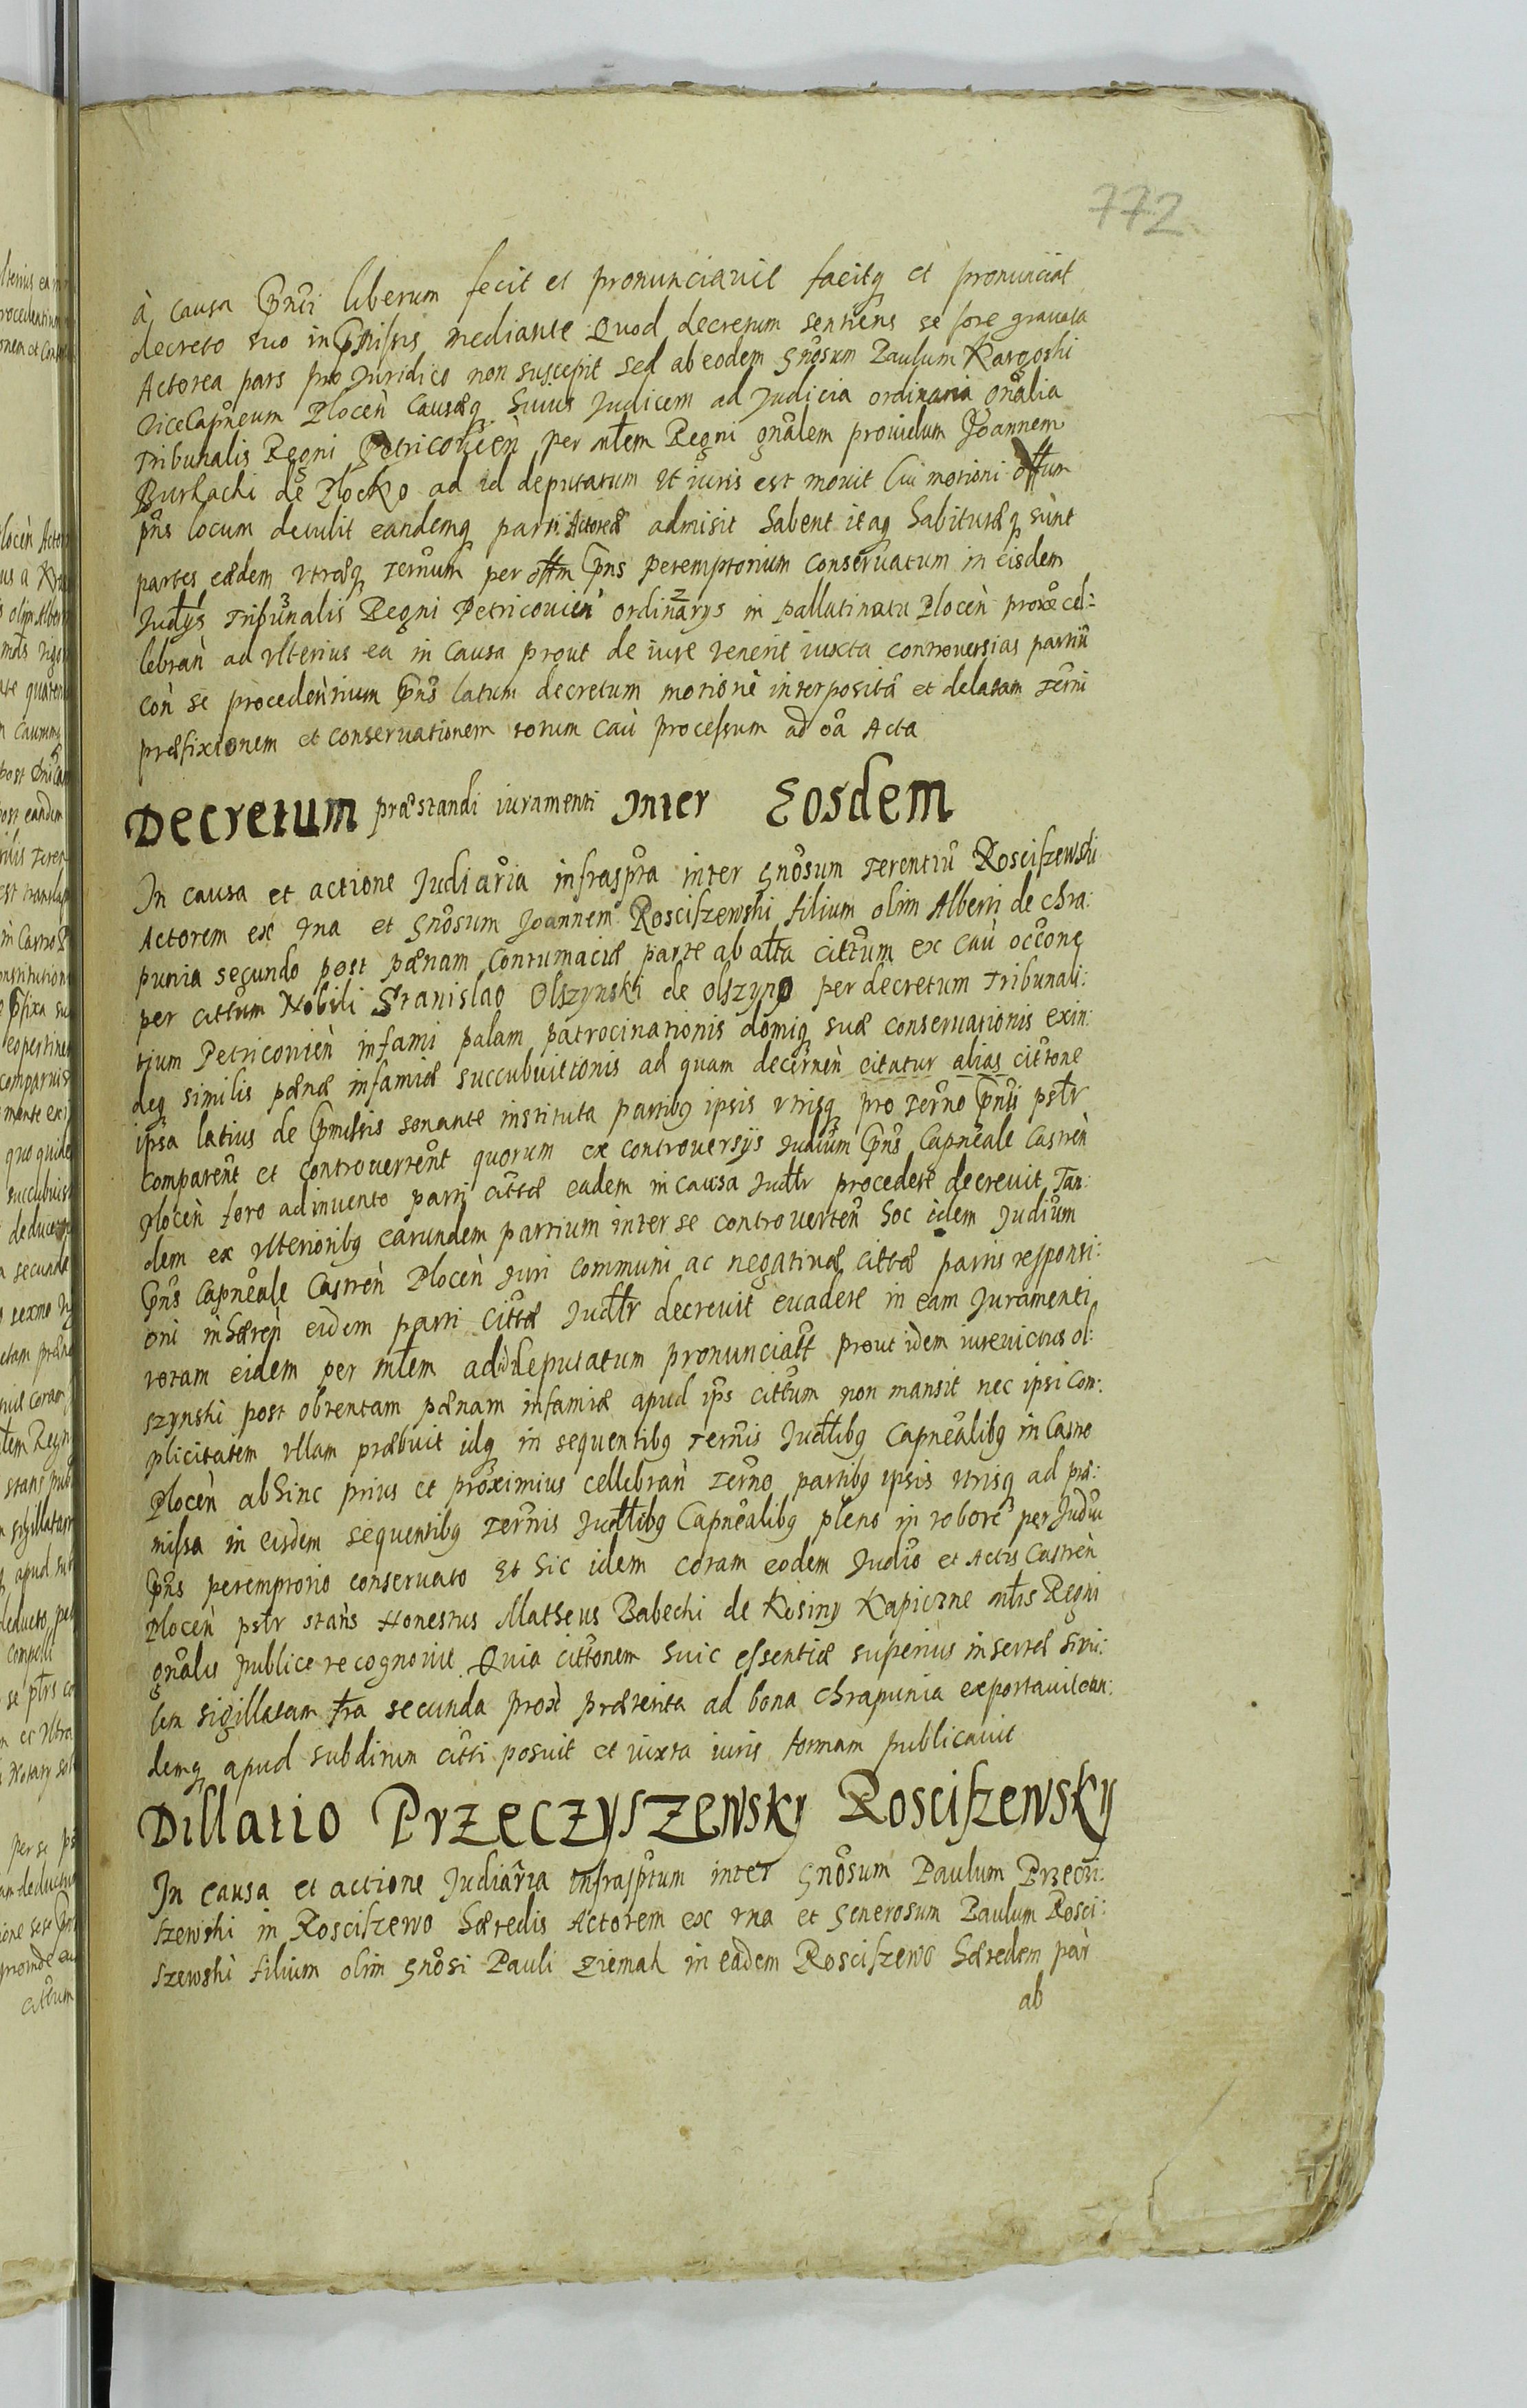 772
à causa p̃nti liberum fecit et pronunciavit facitq et pronunciat
decreto suo in p̃missis mediante Quod decretum sentiens se fore gravata
Actorea pars pro Juridico non suscepit sed ab eodem gnõsum Paulum Kargoski
ViceCapñeum Plocen̄ Causæq huius Judicem ad Judicia ordinaria gnãlia
Tribunalis Regni Petricovien̄ per mlem Regni gnãlem providum Joannem
Burkacki de Plocko ad id deputatum ut iuris est movit Cui motioni offum
pñs locum detulit eandemq parti Actoreæ admisit habent itaq habituræq sunt
partes eædem utræq ternũm per offm p̃ns peremptorium conservatum in eisdem
Judtys Tribunalis Regni Petricovien̄ ordinarys in pallatinatu Plocen̄ proxe cel:
lebran̄ ad ulterius ea in causa prout de iure venerit iuxta controversias partiũ
con̄ se procedentium p̃ns latum decretum motionē interpositã et delatam terñi
præfixionem et conservationem totum cau̇ processum ad oã Acta
Decretum præstandi iuramenti Inter Eosdem
In causa et actione Judiarĩa infrasprta inter gnõsum Terentiũ Roscifzewski
Actorem ex una et gnõsum Joannem Roscifzewski filium olim Alberti de Chra:
punia secundo post pænam contumaciæ parte ab alta cittum ex cau̇ occõne
per cittum Nobili Stanislao Olszynski de Olszyno per decretum Tribunali:
tium Petricovien̄ infami palam patrocinationis domiq suæ conservationis exin:
deq similis pænæ infamiæ succubuitionis ad quam decernen̄ citatur alias cittone
ipsa latius de p̃missis sonante instituta partibq ipsis utrisq pro terno p̃nti pstlr
comparent̃ et controvertent̃ quorum ex controversys Judiũm p̃ns Capneãle Castren̄
Plocen̄ foro adinvento parti cittæ eadem in causa Judtlr procedere decrevit Tan:
dem ex ulterioribq earundem partium inter se controverten̄ hoc idem Judiũm
p̃ns Capneãle Castren̄ Plocen̄ Juri communi ac negativæ cittæ partis responsi:
oni inhæren̄ eidem parti cittæ Judtlr decrevit evadere in eam Juramenti
rotam eidem per mlem ad id deputatum pronunciatt prout idem iurevictus Ol:
szynski post obtentam pænam infamiæ apud ips cittum non mansit nec ipsi com:
plicitatem ullam præbuit idq in sequentibq terñis Judtibq Capneãlibq in Castro
Plocen̄ abhinc prius et proximius cellebran̄ terño partibq ipsis utrisq ad præ:
missa in eisdem sequentibq terñis Judtibq Capneãlibq pleno in robore per Judiũ
p̃ns peremptorio conservato Et sic idem coram eodem Judiõ et Actis Castren̄
Plocen̄ pstlr stans Honestus Matheus Babecki de Kisiny Kapiczne mlis Regni
gnãlis publice recognovit Quia cittonem huic essentiæ superius insertæ simi:
lem sigillatam fra secunda prox̃ præterita ad bona Chrapunia exportavit ean:
demq apud subditum citti posuit et iuxta iuris formam publicavit
Dillatio Przeczyszewsky Roscifzewsky
In causa et actione Judiarĩa infrasprtum inter gnõsum Paulum Przeczi:
szewski in Roscifzewo hæredis Actorem ex una et Generosum Paulum Rosci:
szewski filium olim gnõsi Pauli Ziemak in eadem Roscifzewo hæredem par̄
ab